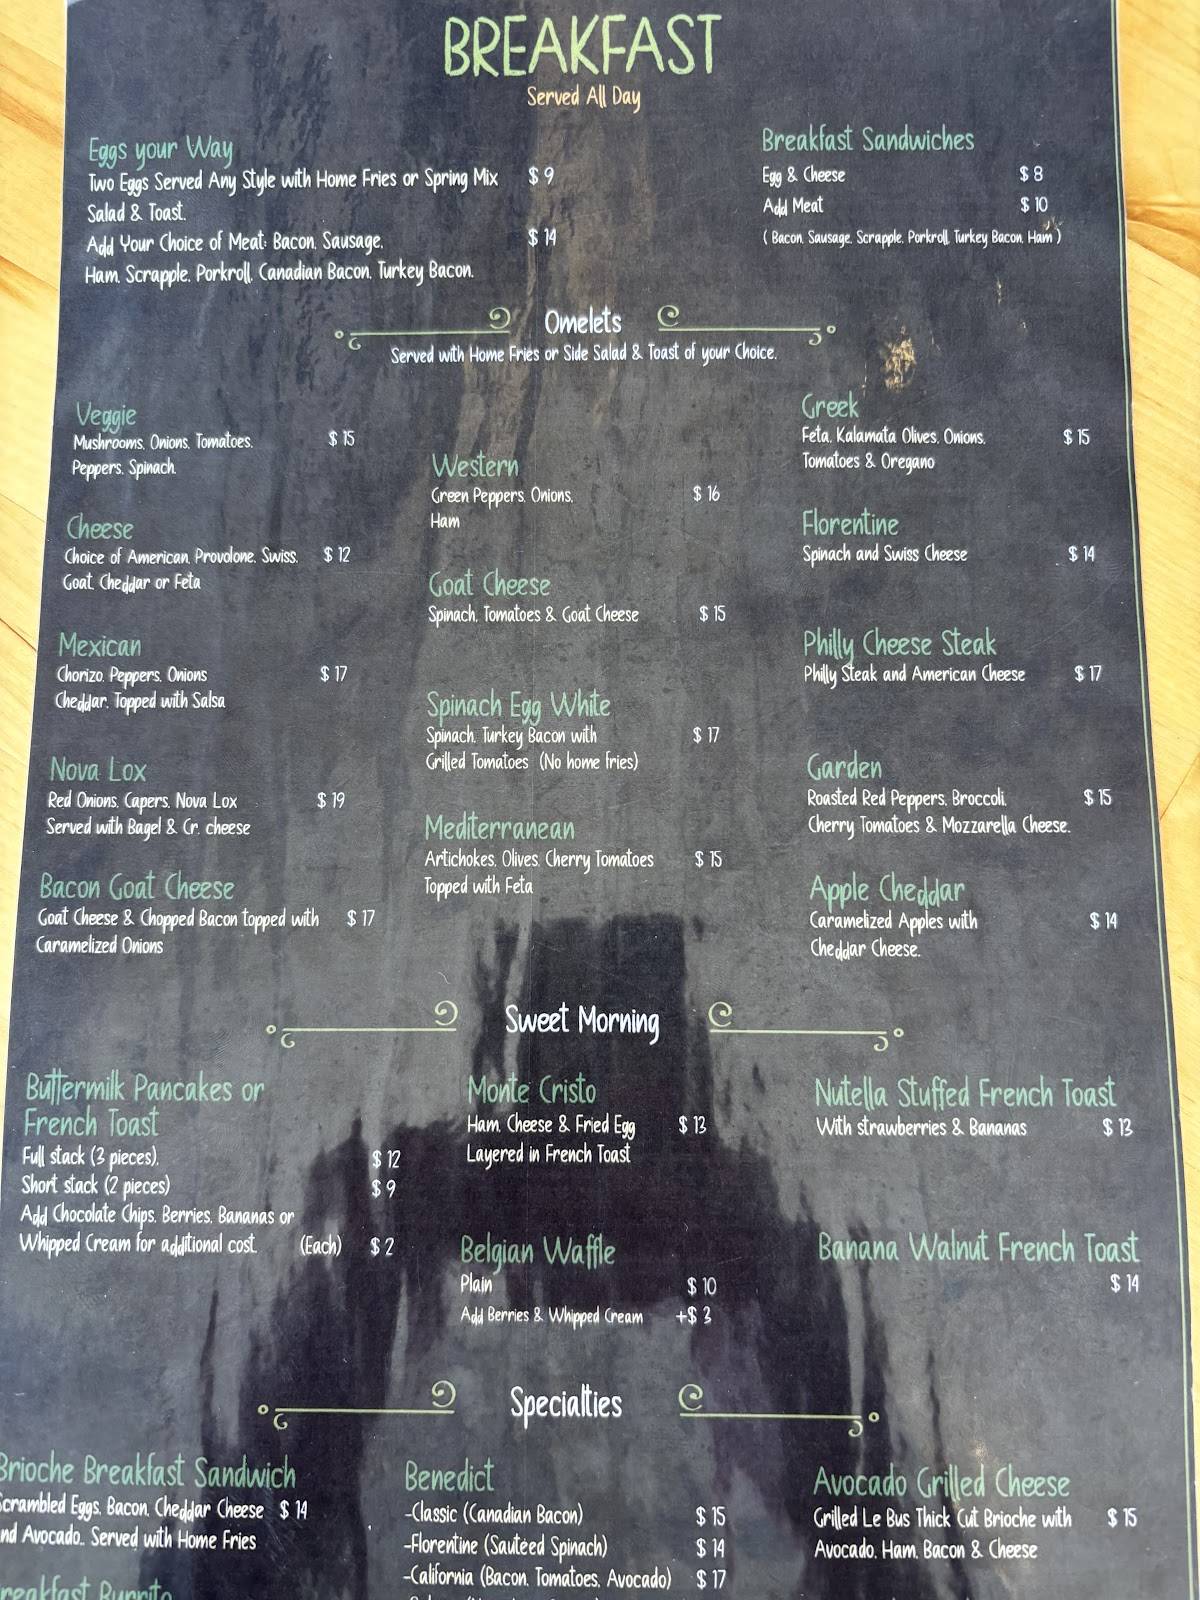 BREAKFAST
Served All Day
Eggs your Way
Two Eggs Served Any Style with Home Fries or Spring Mix $ 9
Salad & Toast.
Add Your Choice of Meat: Bacon, Sausage, $ 14
Ham, Scrapple, Porkroll, Canadian Bacon, Turkey Bacon.
Breakfast Sandwiches
Egg & Cheese $ 8
Add Meat $ 10
( Bacon, Sausage, Scrapple, Porkroll, Turkey Bacon, Ham )
Omelets
Served with Home Fries or Side Salad & Toast of your Choice.
Veggie
Mushrooms, Onions, Tomatoes, $ 15
Peppers, Spinach
Cheese
Choice of American, Provolone, Swiss, $ 12
Goat, Cheddar or Feta
Mexican
Chorizo, Peppers, Onions $ 17
Cheddar, Topped with Salsa
Nova Lox
Red Onions, Capers, Nova Lox $ 19
Served with Bagel & Cr. cheese
Bacon Goat Cheese
Goat Cheese & Chopped Bacon topped with $ 17
Caramelized Onions
Western
Green Peppers, Onions, $ 16
Ham
Goat Cheese
Spinach, Tomatoes & Goat Cheese $ 15
Spinach Egg White
Spinach, Turkey Bacon with $ 17
Grilled Tomatoes (No home fries)
Mediterranean
Artichokes, Olives, Cherry Tomatoes $ 15
Topped with Feta
Greek
Feta, Kalamata Olives, Onions, $ 15
Tomatoes & Oregano
Florentine
Spinach and Swiss Cheese $ 14
Philly Cheese Steak
Philly Steak and American Cheese $ 17
Garden
Roasted Red Peppers, Broccoli, $ 15
Cherry Tomatoes & Mozzarella Cheese.
Apple Cheddar
Caramelized Apples with $ 14
Cheddar Cheese.
Sweet Morning
Buttermilk Pancakes or
French Toast
Full stack (3 pieces), $ 12
Short stack (2 pieces) $ 9
Add Chocolate Chips, Berries, Bananas or
Whipped Cream for additional cost. (Each) $ 2
Monte Cristo
Ham, Cheese & Fried Egg $ 13
Layered in French Toast
Belgian Waffle
Plain $ 10
Add Berries & Whipped Cream +$ 3
Nutella Stuffed French Toast
With strawberries & Bananas $ 13
Banana Walnut French Toast
$ 14
Specialties
Brioche Breakfast Sandwich
Scrambled Eggs, Bacon, Cheddar Cheese $ 14
nd Avocado.. Served with Home Fries
reakfast Burrito
Benedict
-Classic (Canadian Bacon) $ 15
-Florentine (Sauteed Spinach) $ 14
-California (Bacon, Tomatoes, Avocado) $ 17
Avocado Grilled Cheese
Grilled Le Bus Thick Cut Brioche with $ 15
Avocado, Ham, Bacon & Cheese